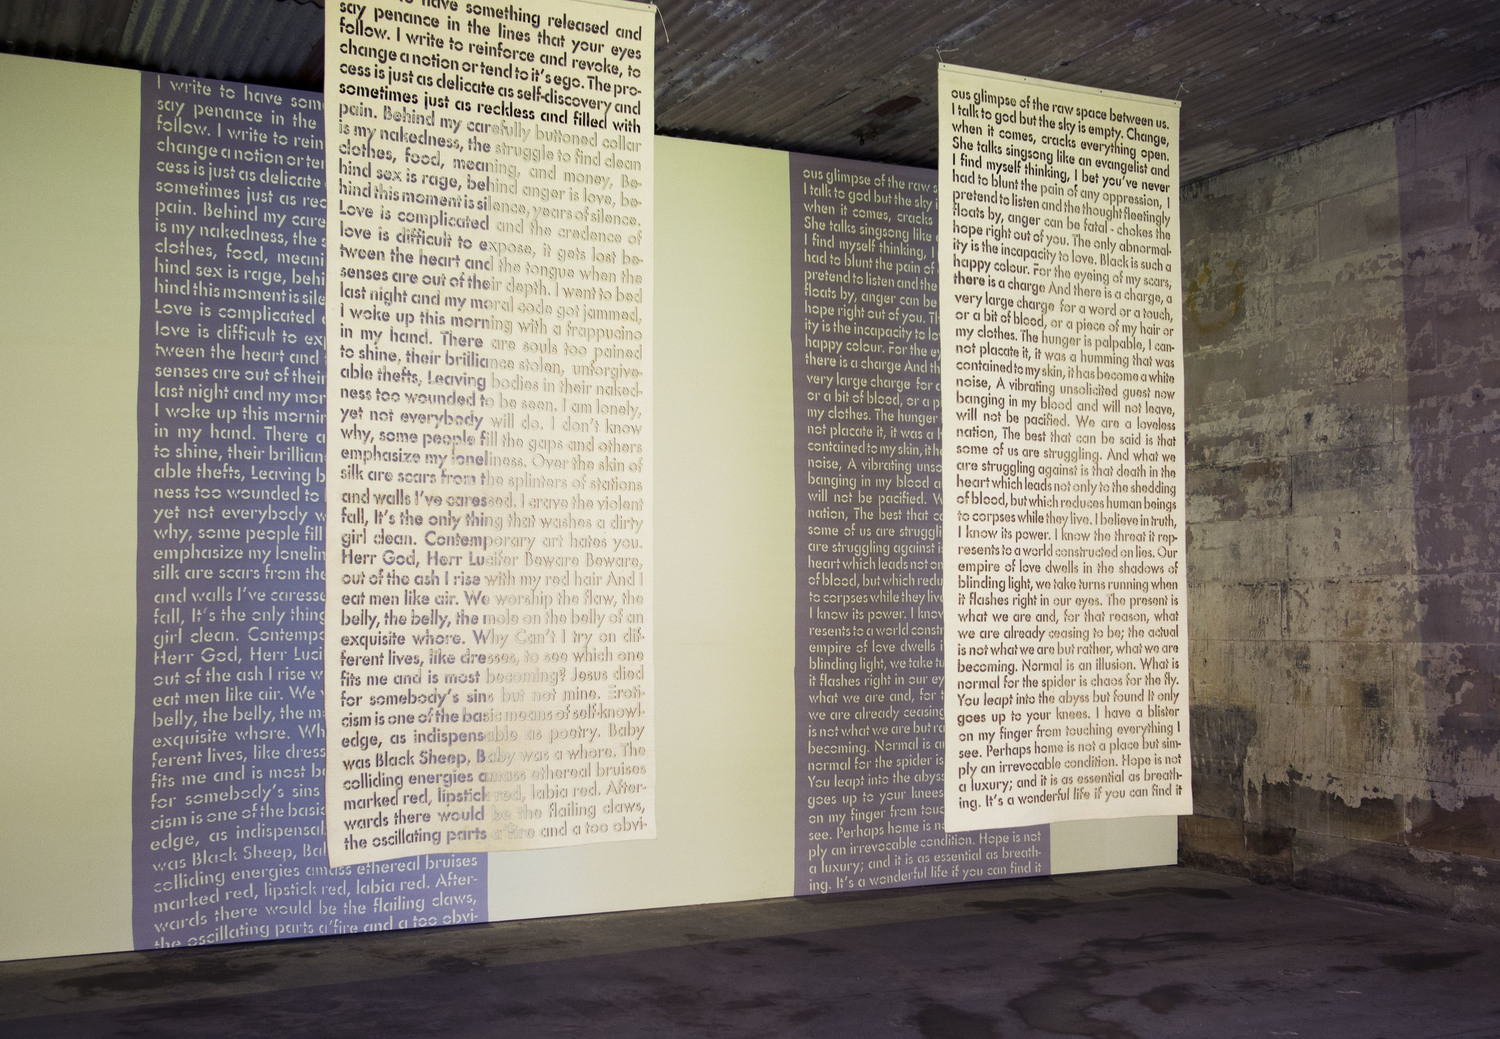 to have something released and
say penance in the lines that your eyes
follow. I write to reinforce and revoke, to
change a notion or tend to it's ego. The pro-
cess is just as delicate as self-discovery and
sometimes just as reckless and filled with
pain. Behind my carefully buttoned collar
is my nakedness, the struggle to find clean
clothes, food, meaning, and money, Be-
hind sex is rage, behind anger is love, be-
hind this moment is silence, years of silence.
Love is complicated and the credence of
love is difficult to expose, it gets lost be-
tween the heart and the tongue when the
senses are out of their depth. I went to bed
last night and my moral code got jammed,
I woke up this morning with a frappucino
in my hand. There are souls too pained
to shine, their brilliance stolen, unforgive-
able thefts, Leaving bodies in their naked-
ness too wounded to be seen. I am lonely,
yet not everybody will do. I don't know
why, some people fill the gaps and others
emphasize my loneliness. Over the skin of
silk are scars from the splinters of stations
and walls I've caressed. I crave the violent
fall, It's the only thing that washes a dirty
girl clean. Contemporary art hates you.
Herr God, Herr Lucifer Beware Beware,
out of the ash I rise with my red hair And I
eat men like air. We worship the flaw, the
belly, the belly, the mole on the belly of an
exquisite whore. Why Can't I try on dif-
ferent lives, like dresses, to see which one
fits me and is most becoming? Jesus died
for somebody's sins but not mine. Eroti-
cism is one of the basic means of self-knowl-
edge, as indispensable as poetry. Baby
was Black Sheep, Baby was a whore. The
colliding energies amass ethereal bruises
marked red, lipstick red, labia red. After-
wards there would be the flailing claws,
the oscillating parts a'fire and a too obvi-
ous glimpse of the raw space between us.
I talk to god but the sky is empty. Change,
when it comes, cracks everything open.
She talks singsong like an evangelist and
I find myself thinking, I bet you've never
had to blunt the pain of any oppression, I
pretend to listen and the thought fleetingly
floats by, anger can be fatal - chokes the
hope right out of you. The only abnormal-
ity is the incapacity to love. Black is such a
happy colour. For the eyeing of my scars,
there is a charge And there is a charge, a
very large charge for a word or a touch,
or a bit of blood, or a piece of my hair or
my clothes. The hunger is palpable, I can-
not placate it, it was a humming that was
contained to my skin, it has become a white
noise, A vibrating unsolicited guest now
banging in my blood and will not leave,
will not be pacified. We are a loveless
nation, The best that can be said is that
some of us are struggling. And what we
are struggling against is that death in the
heart which leads not only to the shedding
of blood, but which reduces human beings
to corpses while they live. I believe in truth,
I know its power. I know the threat it rep-
resents to a world constructed on lies. Our
empire of love dwells in the shadows of
blinding light, we take turns running when
it flashes right in our eyes. The present is
what we are and, for that reason, what
we are already ceasing to be; the actual
is not what we are but rather, what we are
becoming. Normal is an illusion. What is
normal for the spider is chaos for the fly.
You leapt into the abyss but found It only
goes up to your knees. I have a blister
on my finger from touching everything I
see. Perhaps home is not a place but sim-
ply an irrevocable condition. Hope is not
a luxury; and it is as essential as breath-
ing. It's a wonderful life if you can find it
I write to have som
say penance in the
follow. I write to rein
change a notion or ten
cess is just as delicate
sometimes just as rec
pain. Behind my care
is my nakedness, the s
clothes, food, meani
hind sex is rage, behi
hind this moment is sile
Love is complicated
love is difficult to exp
tween the heart and
senses are out of their
last night and my mor
I woke up this mornin
in my hand. There a
to shine, their brillian
able thefts, Leaving b
ness too wounded to
yet not everybody w
why, some people fill
emphasize my lonelin
silk are scars from the
and walls I've caresse
fall, It's the only thing
girl clean. Contempo
Herr God, Herr Luci
out of the ash I rise w
eat men like air. We
belly, the belly, the m
exquisite whore. Wh
ferent lives, like dress
fits me and is most be
for somebody's sins
cism is one of the basic
edge, as indispensal
was Black Sheep, Bal
colliding energies amass ethereal bruises
marked red, lipstick red, labia red. After-
wards there would be the flailing claws,
the oscillating parts a'fire and a too obvi-
ous glimpse of the raw s
I talk to god but the sky i
when it comes, cracks
She talks singsong like
I find myself thinking, I
had to blunt the pain of
pretend to listen and the
floats by, anger can be
hope right out of you. Th
ity is the incapacity to lo
happy colour. For the ey
there is a charge And th
very large charge for c
or a bit of blood, or a p
my clothes. The hunger
not placate it, it was a h
contained to my skin, it h
noise, A vibrating unso
banging in my blood a
will not be pacified. W
nation, The best that c
some of us are struggli
are struggling against i
heart which leads not on
of blood, but which redu
to corpses while they live
I know its power. I know
resents to a world constr
empire of love dwells i
blinding light, we take tu
it flashes right in our ey
what we are and, for t
we are already ceasing
is not what we are but ra
becoming. Normal is an
normal for the spider is
You leapt into the abyss
goes up to your knees
on my finger from touc
see. Perhaps home is na
ply an irrevocable condition. Hope is not
a luxury; and it is as essential as breath-
ing. It's a wonderful life if you can find it